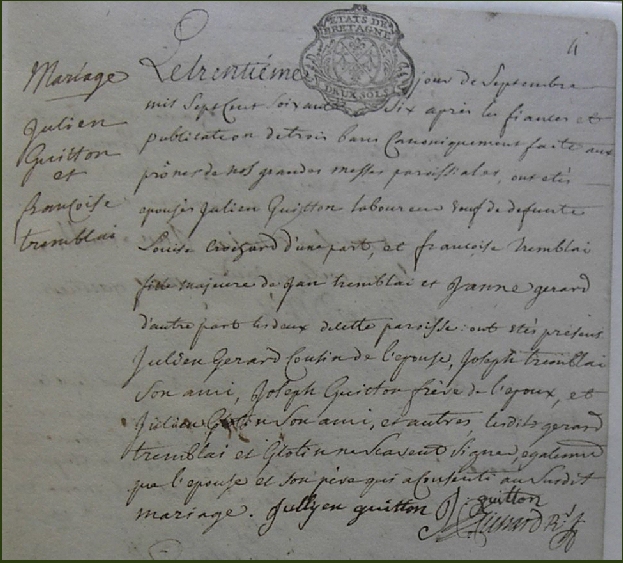 4
Mariage
Julien
Guitton
et
françoise
tremblai
ETATS DE
BRETAGNE
DEUX SOLS
Le trentiéme jour de Septembre
mil Sept Cent Soixante Six après les fiances et
publication de trois bans Canoniquement faite aux
prônes de nos grandes messes paroissiales, ont étés
epousés Julien Guitton laboureur veuf de defunte
Louise d'une part, et françoise tremblai
fille majeure de Jan tremblai et Janne gerard
d'autre part les deux de cette paroisse: ont etés présent
Julien Gerard Cousin de l'epouse, Joseph tremblai
Son ami, Joseph Guitton frère de l'epoux, et
Julien Glotin Son ami, et autres, lesdits gerard
tremblai et Glotin ne Scavent Signer, egalement
que l'epouse et Son père qui a Consenti au Susdit
mariage. Jullyen guitton J guitton
R.